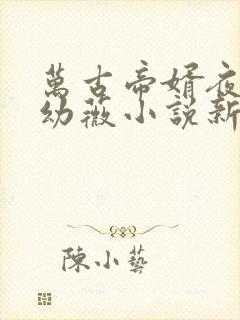 萬古帝婿夜
幼薇小説新
陳小藝